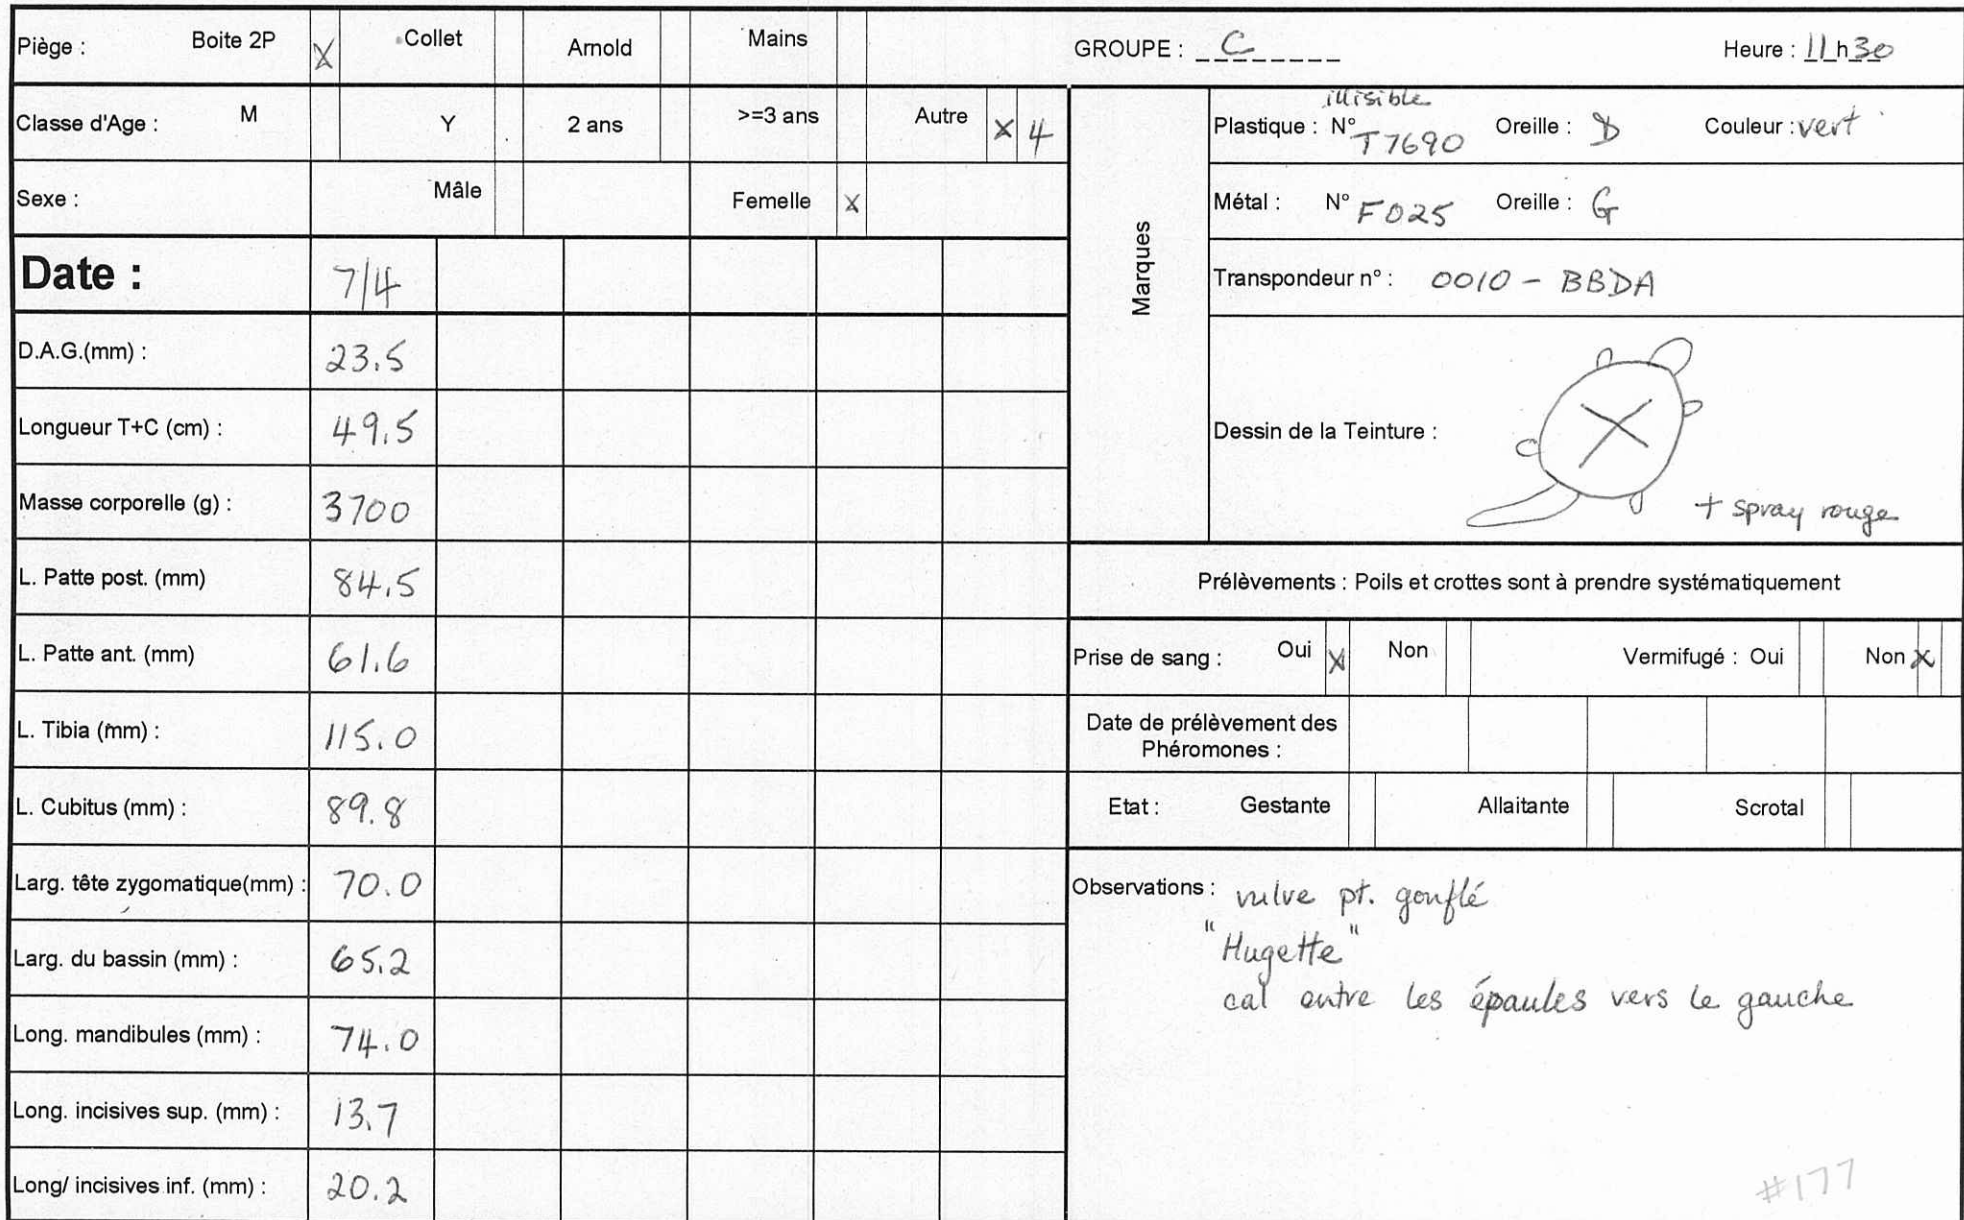 Piège : Boite 2P X Collet Arnold Mains
GROUPE : C Heure : 11h30
Classe d'Age : M Y 2 ans >=3 ans Autre X 4
Sexe : Mâle Femelle X
Date : 7/4
D.A.G.(mm) : 23.5
Longueur T+C (cm) : 49.5
Masse corporelle (g) : 3700
L. Patte post. (mm) 84.5
L. Patte ant. (mm) 61.6
L. Tibia (mm) : 115.0
L. Cubitus (mm) : 89.8
Larg. tête zygomatique(mm) : 70.0
Larg. du bassin (mm) : 65.2
Long. mandibules (mm) : 74.0
Long. incisives sup. (mm) : 13.7
Long/ incisives inf. (mm) : 20.2
Marques
illisible
Plastique : N° T7690 Oreille : D Couleur : vert
Métal : N° F025 Oreille : G
Transpondeur n° : 0010 - BBDA
Dessin de la Teinture :
+ spray rouge
Prélèvements : Poils et crottes sont à prendre systématiquement
Prise de sang : Oui X Non Vermifugé : Oui Non X
Date de prélèvement des
Phéromones :
Etat : Gestante Allaitante Scrotal
Observations : vulve pt. gonflé
"Hugette"
cal entre les épaules vers le gauche
#177